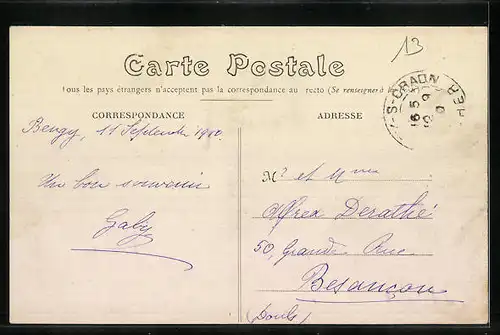 13
Carte Postale
Tous les pays étrangers n'acceptent pas la correspondance au recto (Se renseigner à
CORRESPONDANCE
ADRESSE
-S-CRAON
CHER
16 5
9
Bengy, 15 Septembre
Un bon souvenir
Gaby
Mr et Mme
Alfred Derathé
50, Grande Rue
Besançon
(Doubs)